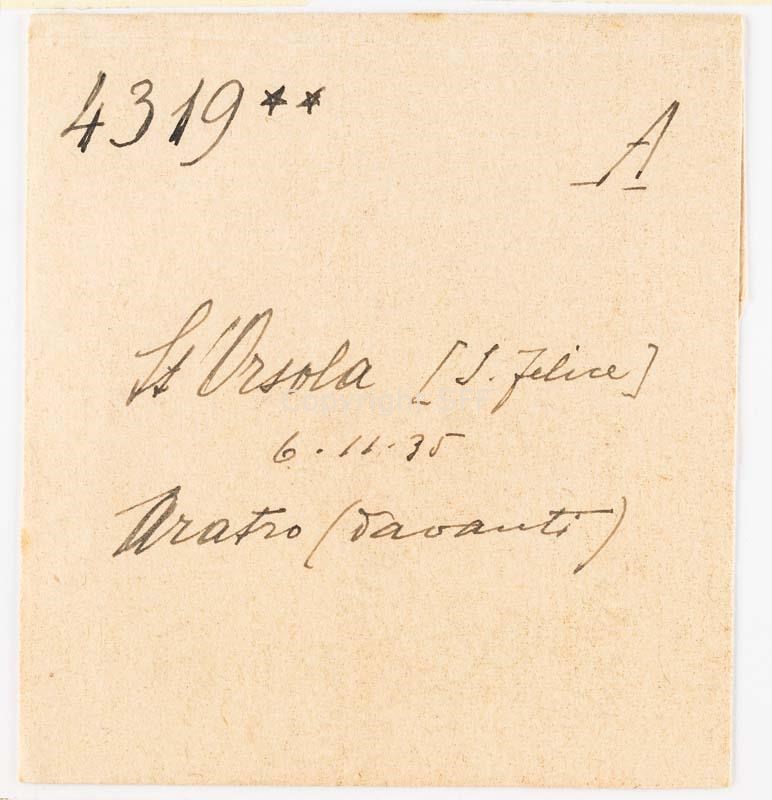 4319** A
St Orsola [S. Felice]
6.11.35
Aratro (davanti)